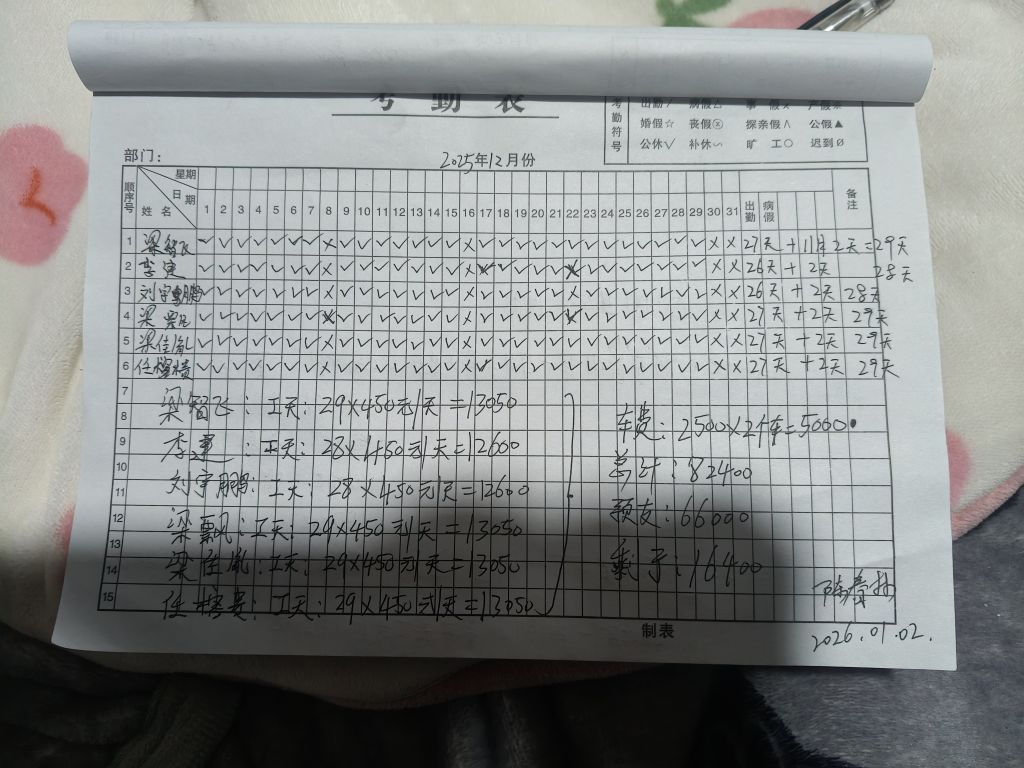 考勤表
考勤符号 出勤/ 病假△ 事假× 产假※
婚假☆ 丧假⊗ 探亲假∧ 公假▲
公休√ 补休∽ 旷工○ 迟到Ø
部门: 2025年12月份
顺序号 星期 日期 姓名 1 2 3 4 5 6 7 8 9 10 11 12 13 14 15 16 17 18 19 20 21 22 23 24 25 26 27 28 29 30 31 出勤 病假 备注
1 梁智飞 ✓ ✓ ✓ ✓ ✓ ✓ ✓ × ✓ ✓ ✓ ✓ ✓ ✓ ✓ × ✓ ✓ ✓ ✓ ✓ ✓ ✓ ✓ ✓ ✓ ✓ ✓ ✓ × × 27天 +11月2天=29天
2 李建 ✓ ✓ ✓ ✓ ✓ ✓ ✓ × ✓ ✓ ✓ ✓ ✓ ✓ ✓ × ✓ ✓ ✓ ✓ ✓ × ✓ ✓ ✓ ✓ ✓ ✓ ✓ × × 26天 +2天 28天
3 刘宇鹏 ✓ ✓ ✓ ✓ ✓ ✓ ✓ × ✓ ✓ ✓ ✓ ✓ ✓ ✓ × ✓ ✓ ✓ ✓ ✓ × ✓ ✓ ✓ ✓ ✓ ✓ ✓ × × 26天 +2天 28天
4 梁飘 ✓ ✓ ✓ ✓ ✓ ✓ ✓ × ✓ ✓ ✓ ✓ ✓ ✓ ✓ × ✓ ✓ ✓ ✓ ✓ ✓ ✓ ✓ ✓ ✓ ✓ ✓ ✓ × × 27天 +2天 29天
5 梁佳胤 ✓ ✓ ✓ ✓ ✓ ✓ ✓ × ✓ ✓ ✓ ✓ ✓ ✓ ✓ × ✓ ✓ ✓ ✓ ✓ ✓ ✓ ✓ ✓ ✓ ✓ ✓ ✓ × × 27天 +2天 29天
6 任 ✓ ✓ ✓ ✓ ✓ ✓ ✓ × ✓ ✓ ✓ ✓ ✓ ✓ ✓ × ✓ ✓ ✓ ✓ ✓ ✓ ✓ ✓ ✓ ✓ ✓ ✓ ✓ × × 27天 +2天 29天
7
8 梁智飞:工天:29×450元/天=13050 车费:2500×2个车=5000.
9 李建:工天:28×450元/天=12600
10 总计:82400
11 刘宇鹏:工天:28×450元/天=12600
12 梁飘:工天:29×450元/天=13050 预支:66000
13
14 梁佳胤:工天:29×450元/天=13050 剩于:16400
15 任:工天:29×450元/天=13050
制表
2026.01.02.